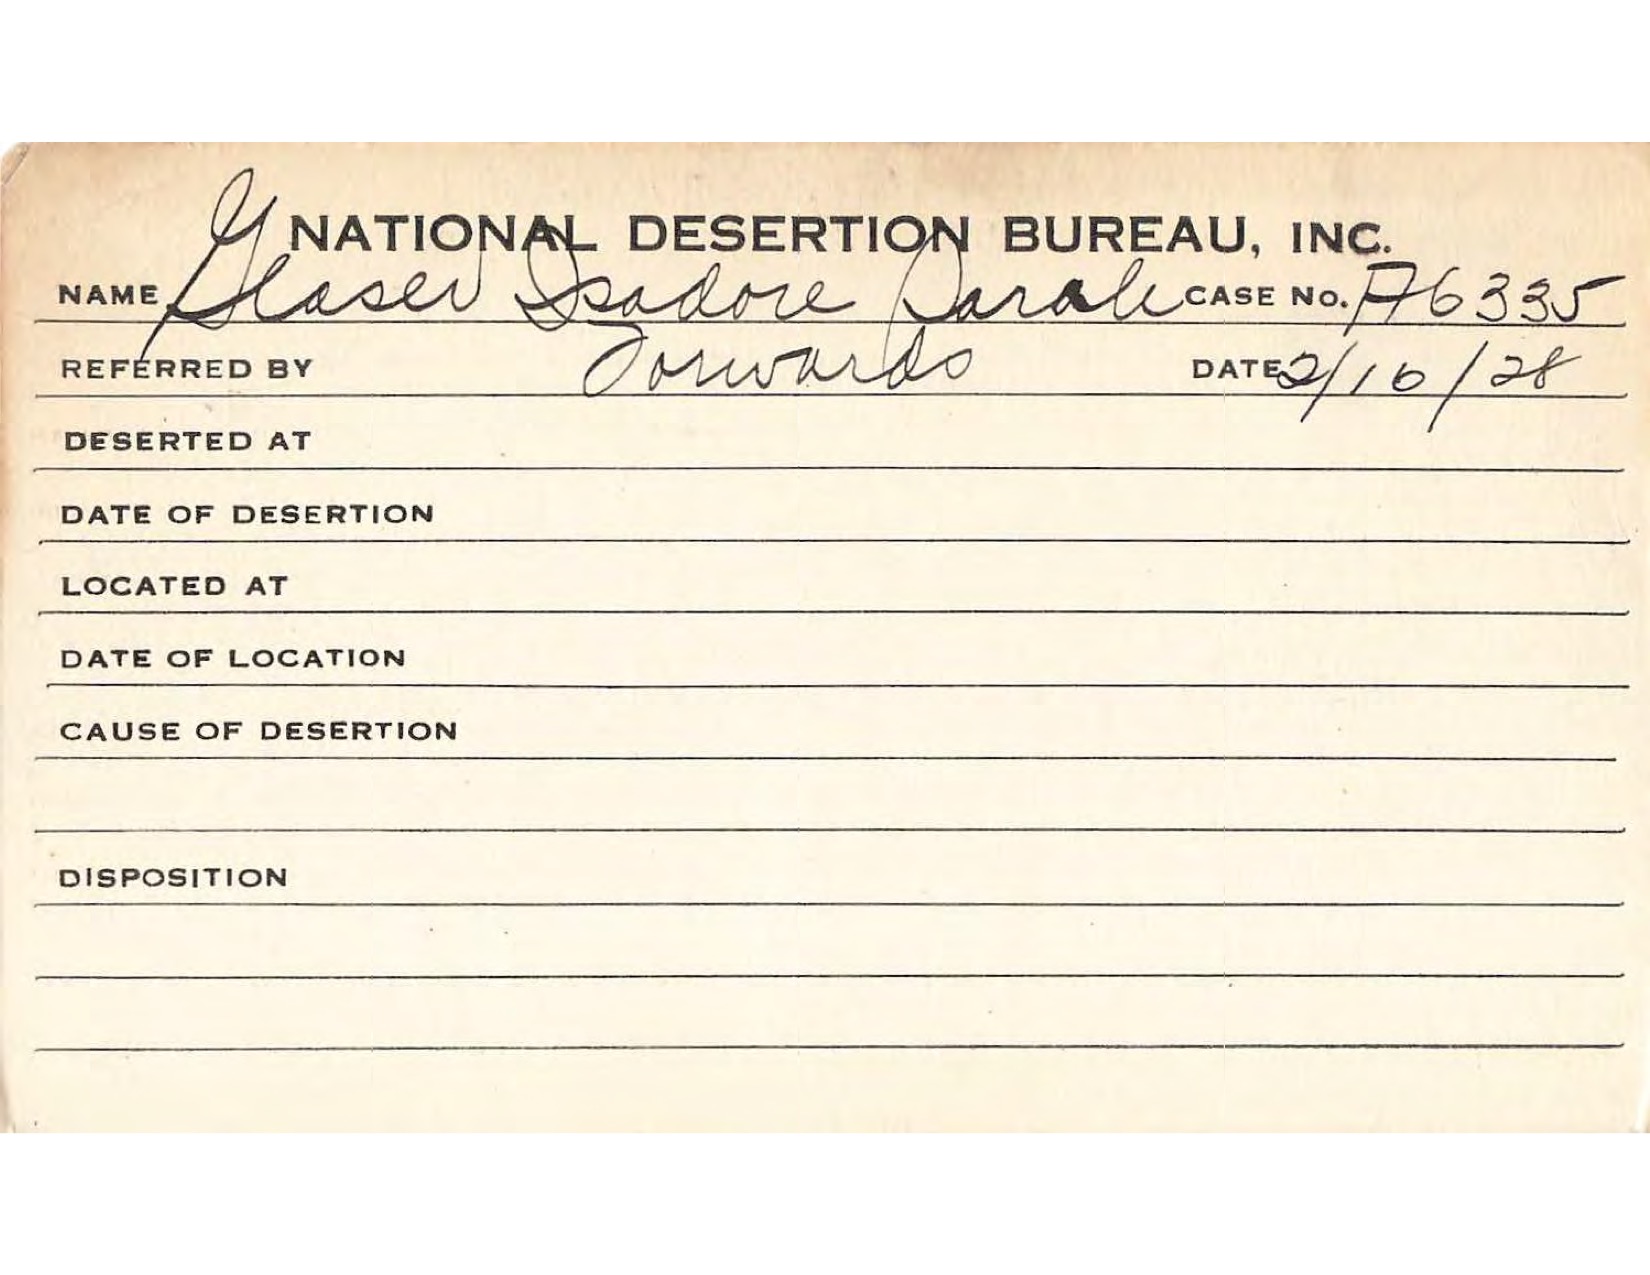 NATIONAL DESERTION BUREAU, INC.
NAME Glaser Isadore Sarah CASE NO. A6335
REFERRED BY Forwards DATE 2/16/28
DESERTED AT
DATE OF DESERTION
LOCATED AT
DATE OF LOCATION
CAUSE OF DESERTION
DISPOSITION